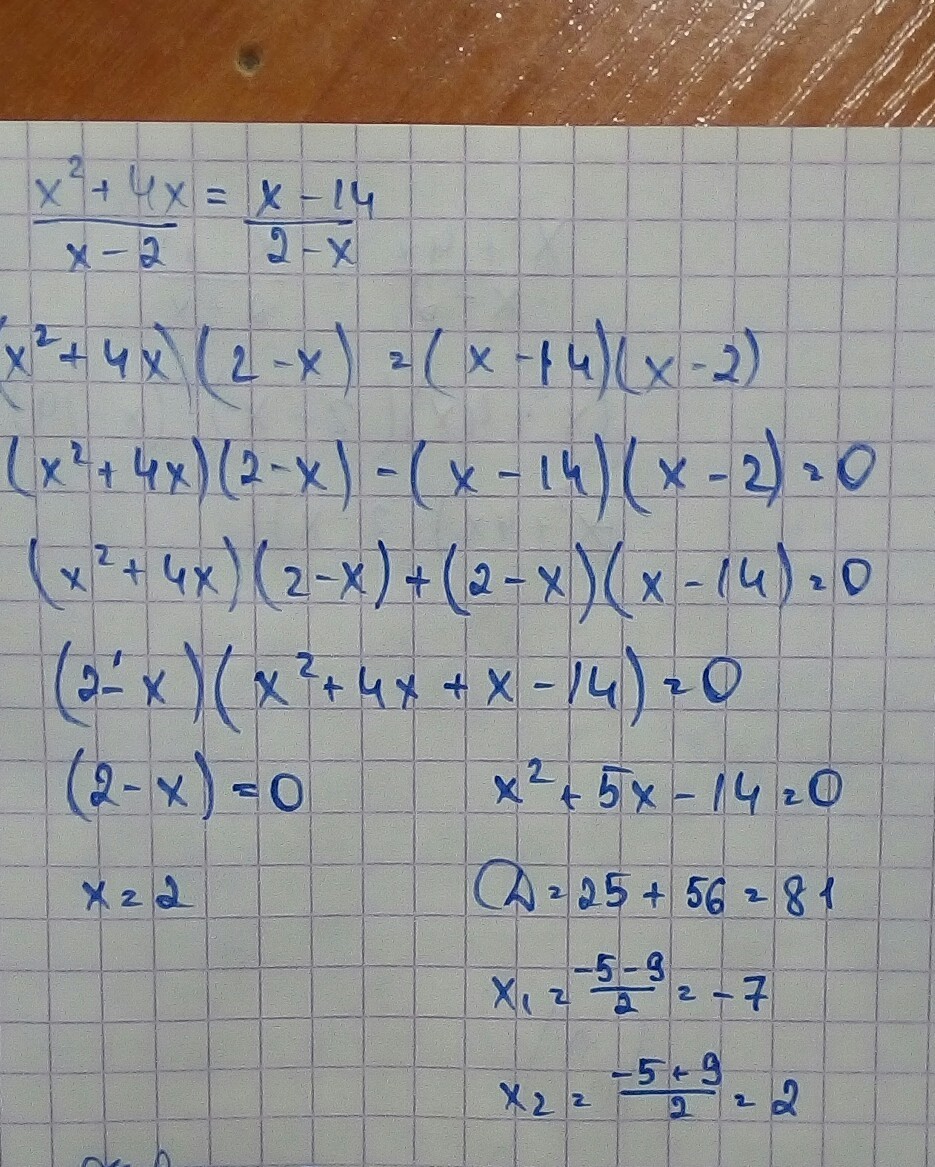 (x² + 4x)/(x - 2) = (x - 14)/(2 - x)
(x² + 4x)(2 - x) = (x - 14)(x - 2)
(x² + 4x)(2 - x) - (x - 14)(x - 2) = 0
(x² + 4x)(2 - x) + (2 - x)(x - 14) = 0
(2 - x)(x² + 4x + x - 14) = 0
(2 - x) = 0 x² + 5x - 14 = 0
x = 2 D = 25 + 56 = 81
x₁ = (-5 - 9)/2 = -7
x₂ = (-5 + 9)/2 = 2